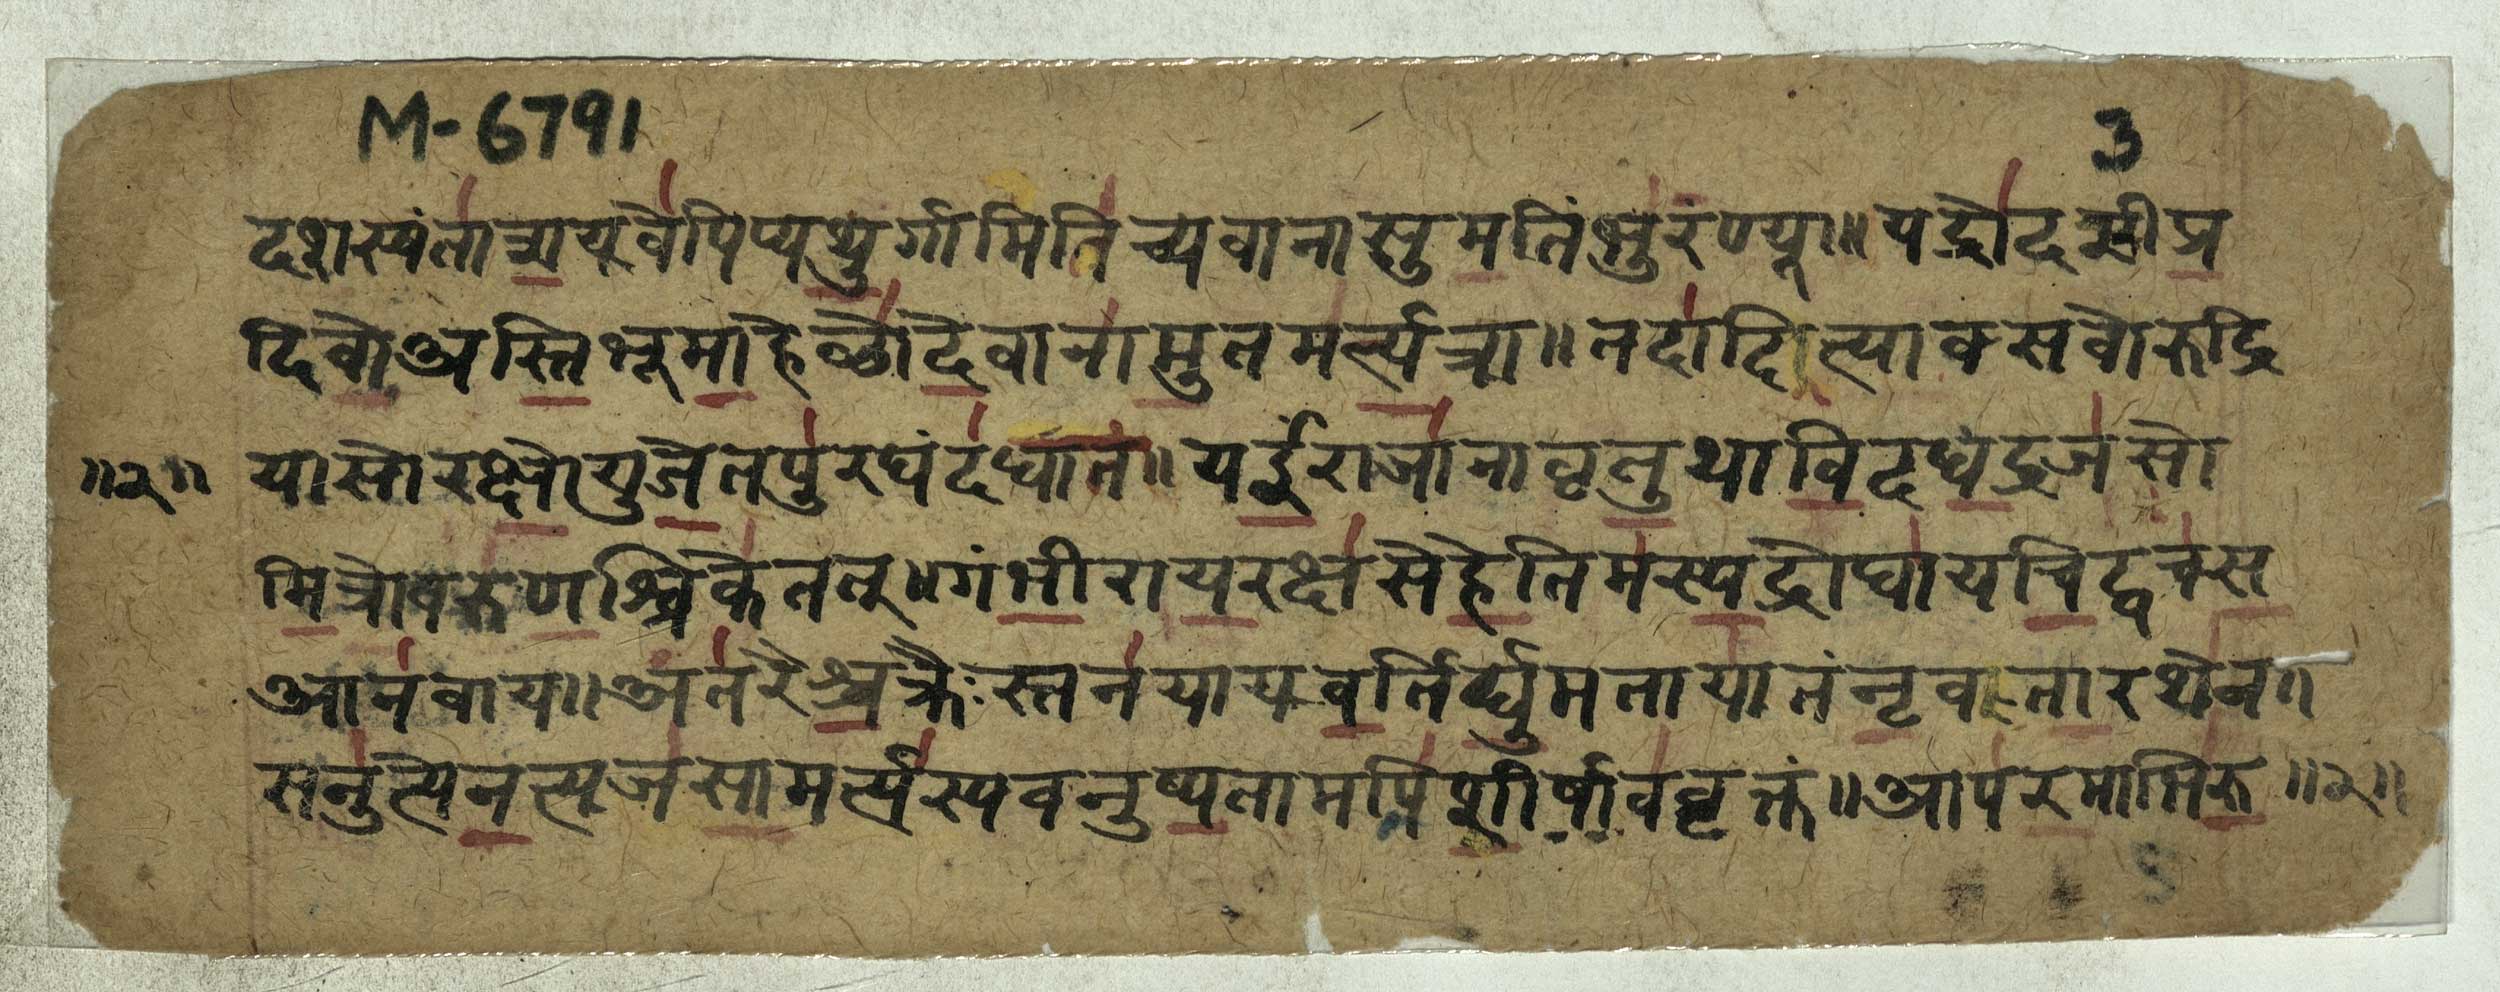 M-6791 3
दशस्यंता॑श॒यवे॑पिप्यथु॒र्गामिति॑च्यवानासुम॒तिंभु॑रण्यू॥यद्रो॑दसीप्र॒
दिवो॒अस्ति॒भूमा॒हेळो॑दे॒वाना॑मु॒तम॑र्त्य॒त्रा॥तदा॑दित्यावसवोरुद्रि
॥२॥ यासोरक्षो॒युजे॒तपु॑रघंद॑धात॥यईं॒राजा॑नावृतु॒थावि॒दध॒द्रज॑सो
मि॒त्रोवरु॑ण॒श्चिके॑तत्॥गं॒भी॒राय॒रक्ष॑सेहे॒तिम॑स्य॒द्रोघा॑यचि॒द्वच॑स॒
आन॑वाय॥अंत॑रैश्च॒क्रैःस्तन॑यायव॒र्तिर्द्यु॒मतायातं॑नृ॒वता॒रथे॑न॥
सनु॑त्येन॒त्यज॑सा॒मर्त्य॑स्यवनुष्य॒तामपि॑शी॒र्षाव॑वृक्तं॥आप॑र॒माभि॑रु॒ ॥२॥